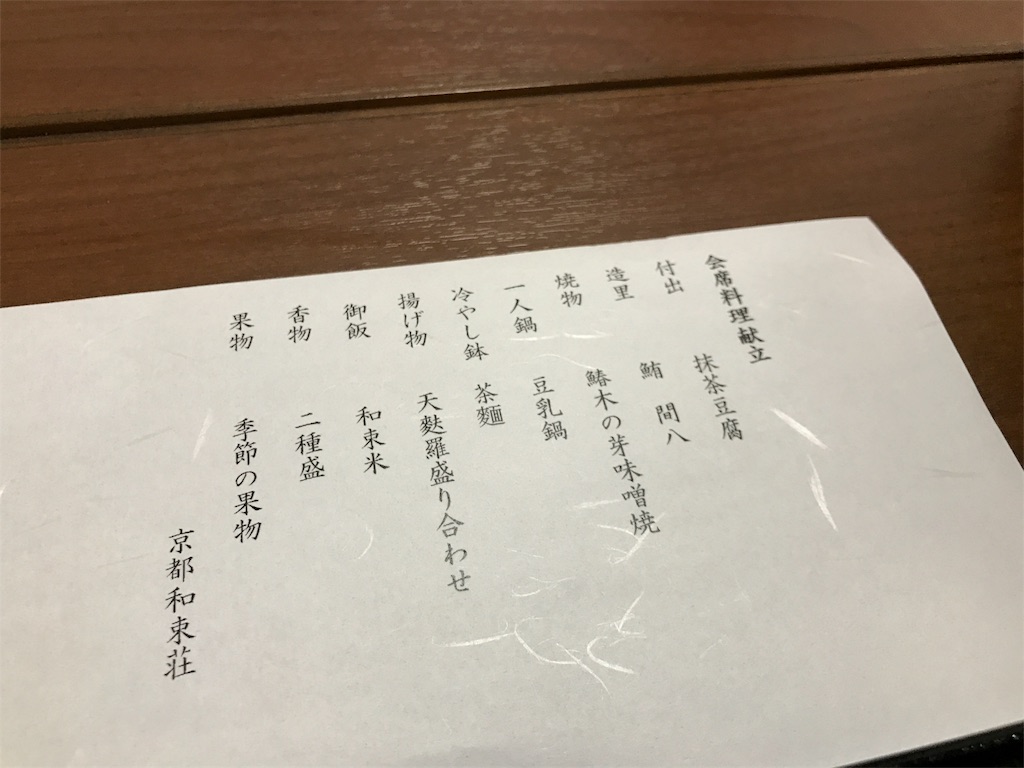 会席料理献立
付出 抹茶豆腐
造里 鮪 間八
焼物 鰆木の芽味噌焼
一人鍋 豆乳鍋
冷やし鉢 茶麺
揚げ物 天麩羅盛り合わせ
御飯 和束米
香物 二種盛
果物 季節の果物
京都和束荘